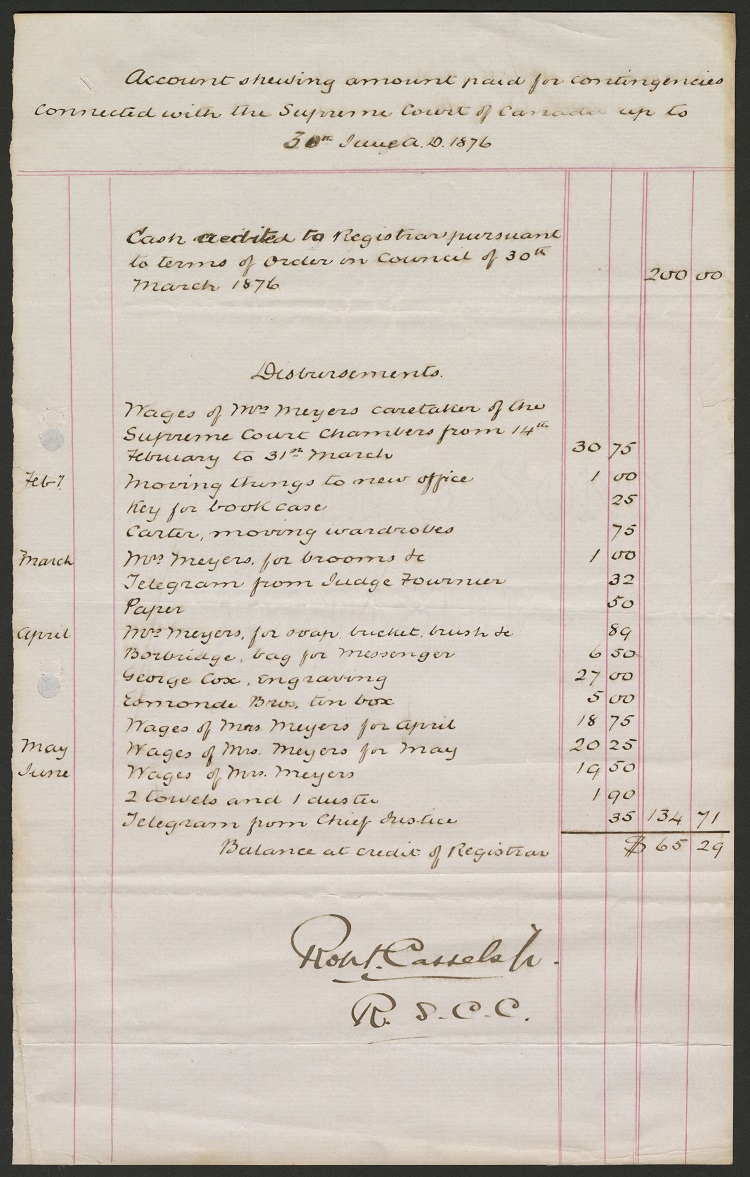 Account shewing amount paid for contingencies
connected with the Supreme Court of Canada up to
30th June A.D. 1876
Cash credited to Registrar pursuant
to terms of Order in Council of 30th
March 1876 200 00
Disbursements.
Wages of Mrs Meyers caretaker of the
Supreme Court Chambers from 14th
February to 31st March 30 75
Feby. Moving things to new office 1 00
Key for bookcase 25
Carter, moving wardrobes 75
March Mrs Meyers, for brooms &c 1 00
Telegram from Judge Fournier 32
Paper 50
April Mrs Meyers, for soap, bucket, brush &c 89
Borbridge, bag for Messenger 6 50
George Cox, Engraving 27 00
Esmonde Bros, tin box 5 00
Wages of Mrs Meyers for April 18 75
May Wages of Mrs. Meyers for May 20 25
June Wages of Mrs. Meyers 19 50
2 towels and 1 duster 1 90
Telegram from Chief Justice 35 134 71
Balance at credit of Registrar $ 65 29
Robt. Cassels Jr.
R. S. C. C.